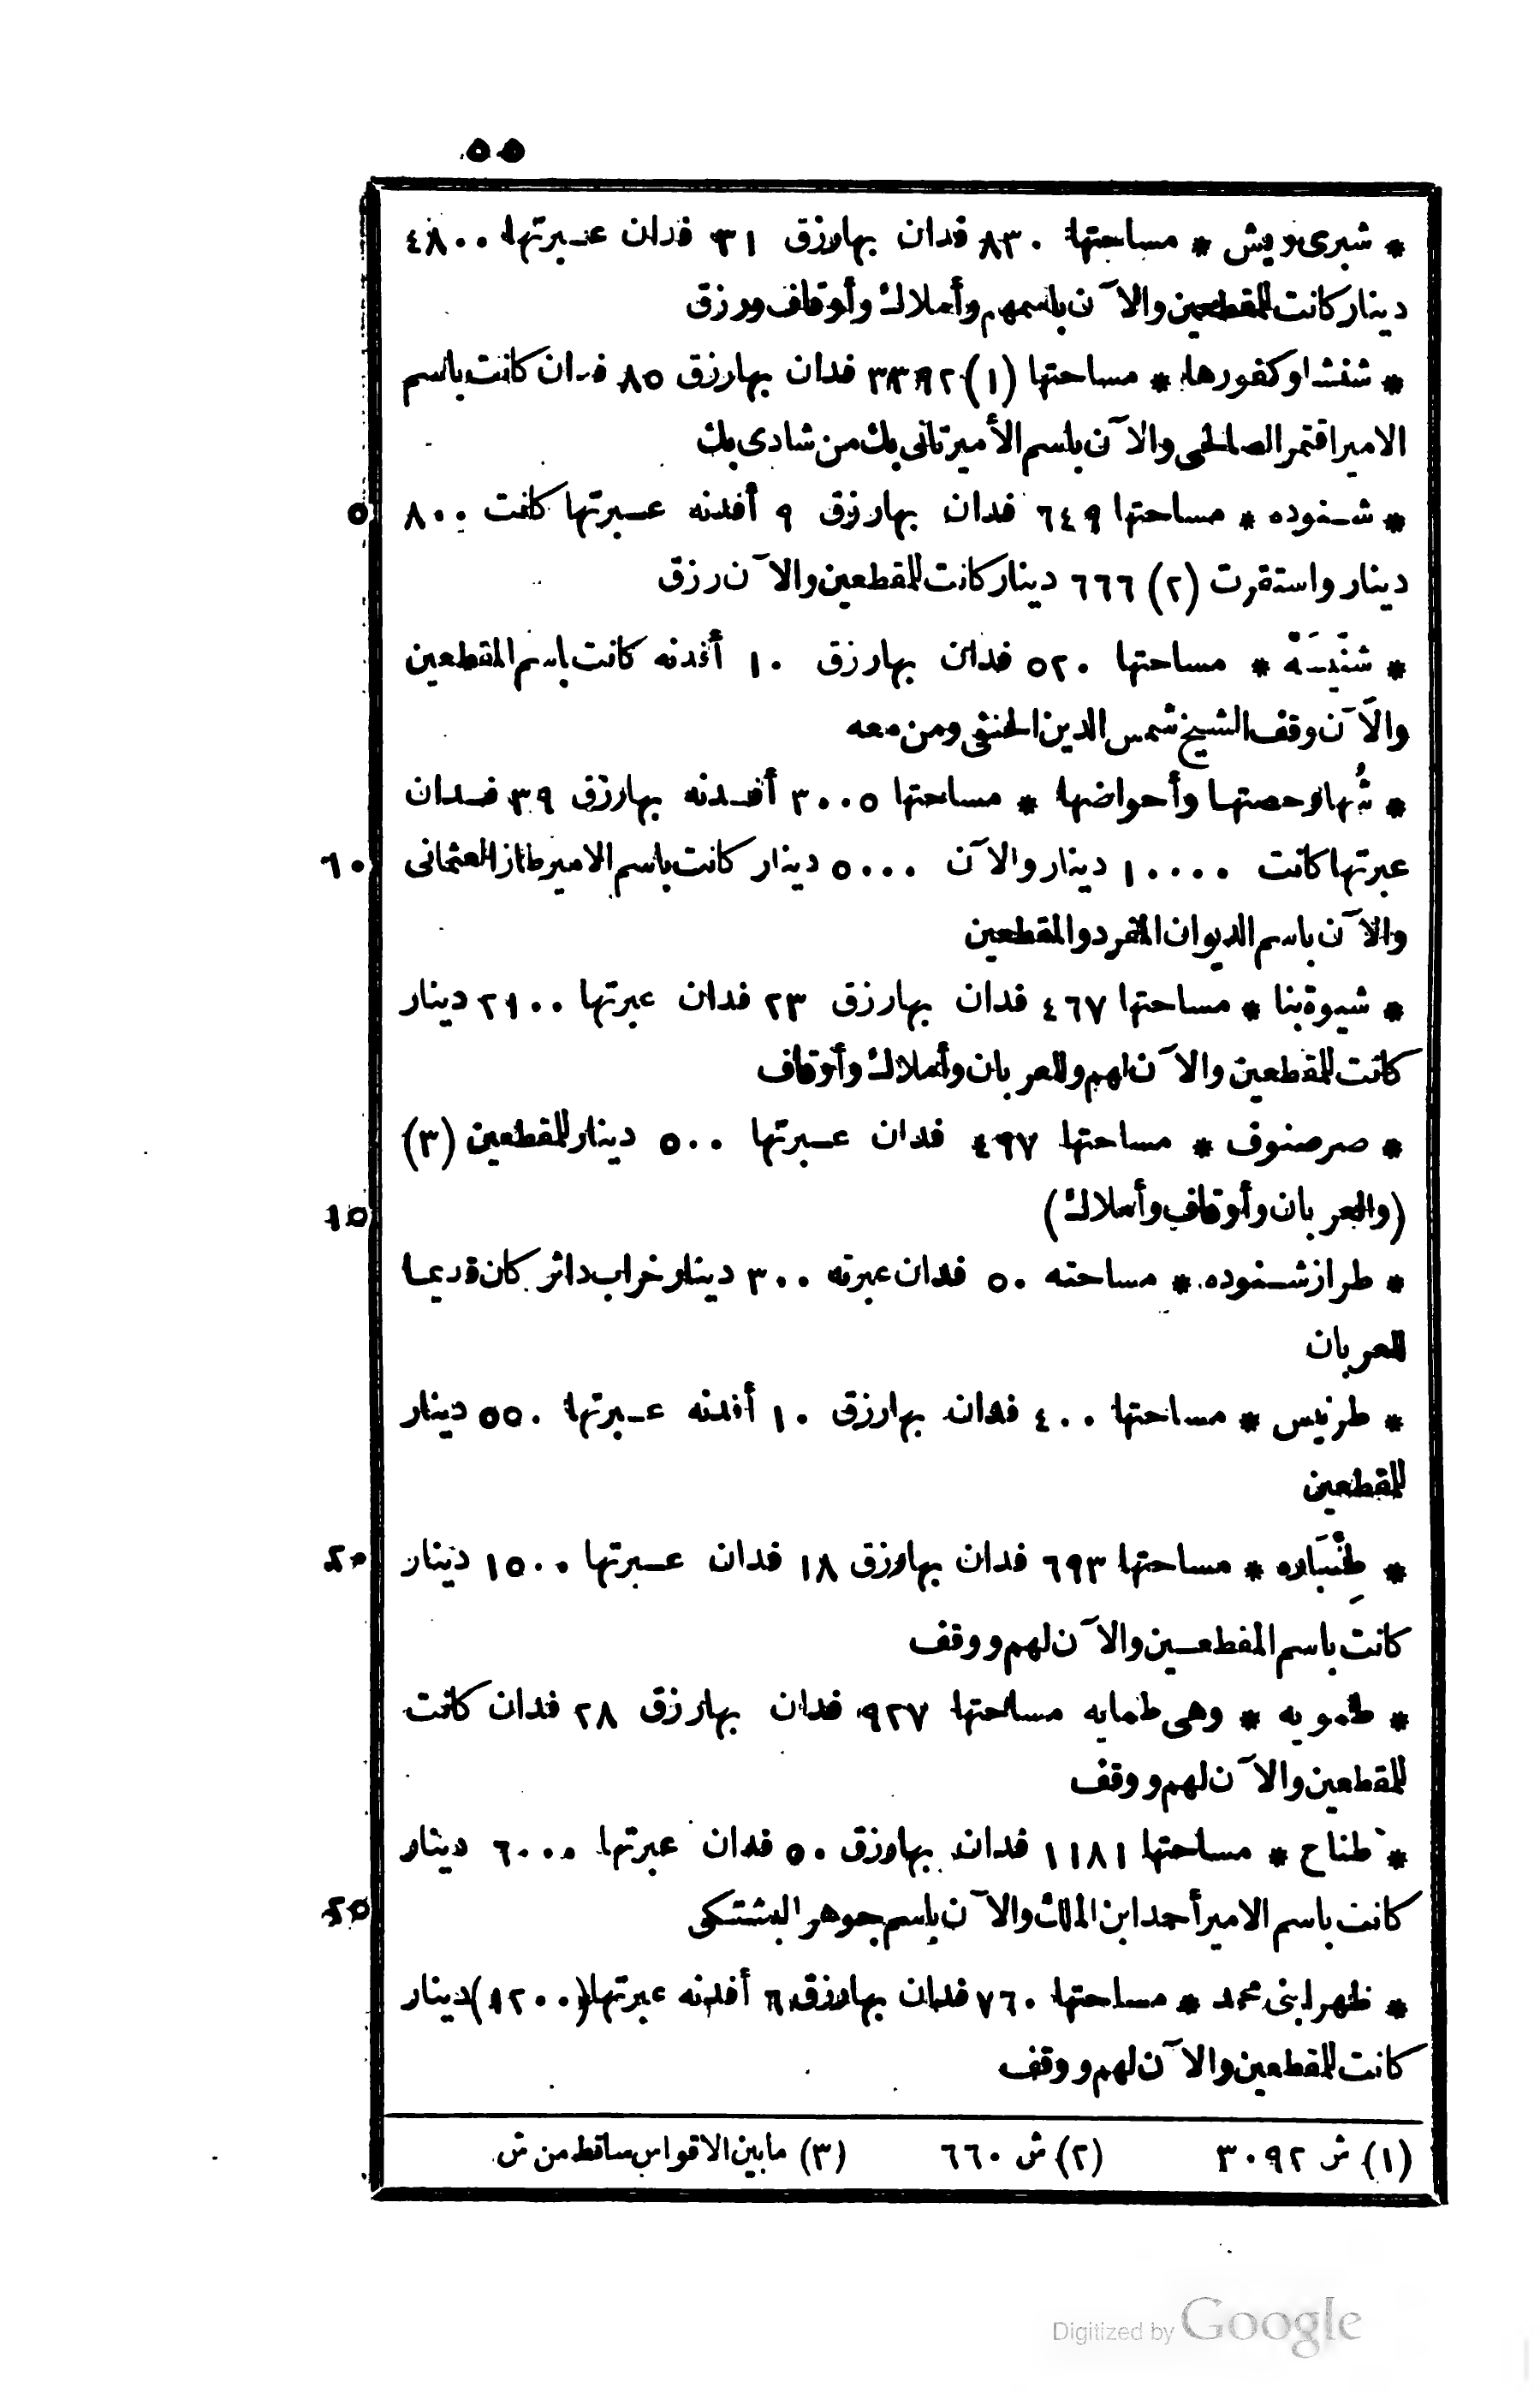 ٥٥
* شبرى ويش * مساحتها ٨٣٠ فدان بها رزق ٣١ فدان عبرتها ٤٨٠٠
دينار كانت للمقطعين والآن باسمهم وأملاك وأوقاف ورزق
* شنشا وكفورها * مساحتها (١) فدان بها رزق ٨٥ فدان كانت باسم
الامير اقتمر الصالحى والآن باسم الأمير تانى بك من شادى بك
* شنوده * مساحتها ٦٤٩ فدان بها رزق ٩ أفدنه عبرتها كانت ٨٠٠
٥
دينار واستقرت (٢) ٦٦٦ دينار كانت للمقطعين والآن رزق
* شَنْيسَة * مساحتها ٥٢٠ فدان بها رزق ١٠ أفدنه كانت باسم المقطعين
والآن وقف الشيخ شمس الدين الحنفى ومن معه
* شُها وحصتها وأحواضها * مساحتها ٣٠٠٥ أفدنه بها رزق ٣٩ فدان
عبرتها كانت ١٠٠٠٠ دينار والآن ٥٠٠٠ دينار كانت باسم الامير طاز العثمانى
١٠
والآن باسم الديوان المفرد والمقطعين
* شيوة بنا * مساحتها ٤٦٧ فدان بها رزق ٢٣ فدان عبرتها ٢١٠٠ دينار
كانت للمقطعين والآن لهم وللعربان وأملاك وأوقاف
* صرصنوف * مساحتها ٤٩٧ فدان عبرتها ٥٠٠ دينار للمقطعين (٣)
(والعربان وأوقاف وأملاك)
١٥
* طراز شنوده * مساحته ٥٠ فدان عبرته ٣٠٠ دينار خراب داثر كان قديما
للعربان
* طرنيس * مساحتها ٤٠٠ فدان بها رزق ١٠ أفدنه عبرتها ٥٥٠ دينار
للمقطعين
* طِنْبَاره * مساحتها ٦٩٣ فدان بها رزق ١٨ فدان عبرتها ١٥٠٠ دينار
٢٠
كانت باسم المقطعين والآن لهم ووقف
* طمويه * وهى طمايه مساحتها ٩٢٧ فدان بها رزق ٢٨ فدان كانت
للمقطعين والآن لهم ووقف
* طناح * مساحتها ١١٨١ فدان بها رزق ٥٠ فدان عبرتها ٦٠٠٠ دينار
كانت باسم الامير أحمد ابن الملك والآن باسم جوهر البشتكى
٢٥
* ظهر ابنى محمد * مساحتها ٧٦٠ فدان بها رزق ٦ أفدنه عبرتها (١٢٠٠) دينار
كانت للمقطعين والآن لهم ووقف
(١) ش ٣٠٩٢ (٢) ش ٦٦٠ (٣) ما بين الاقواس ساقط من ش
Digitized by Google